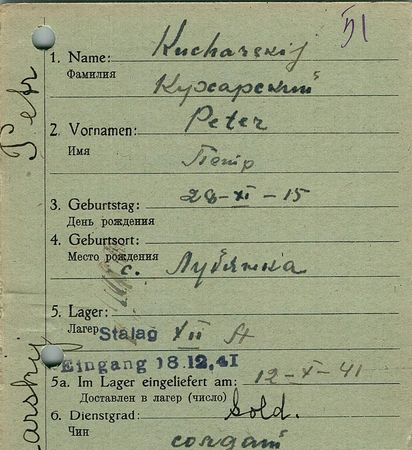 51
1. Name: Kucharskij
Фамилия Кухарский
2. Vornamen: Peter
Имя Петр
3. Geburtstag: 28-XI-15
День рождения
4. Geburtsort:
Место рождения с. Лубянка
5. Lager:
Лагер Stalag XII A
Eingang 18.12.41
5a. Im Lager eingeliefert am: 12-X-41
Доставлен в лагер (число)
6. Dienstgrad: Sold.
Чин солдат
Petr
arsky